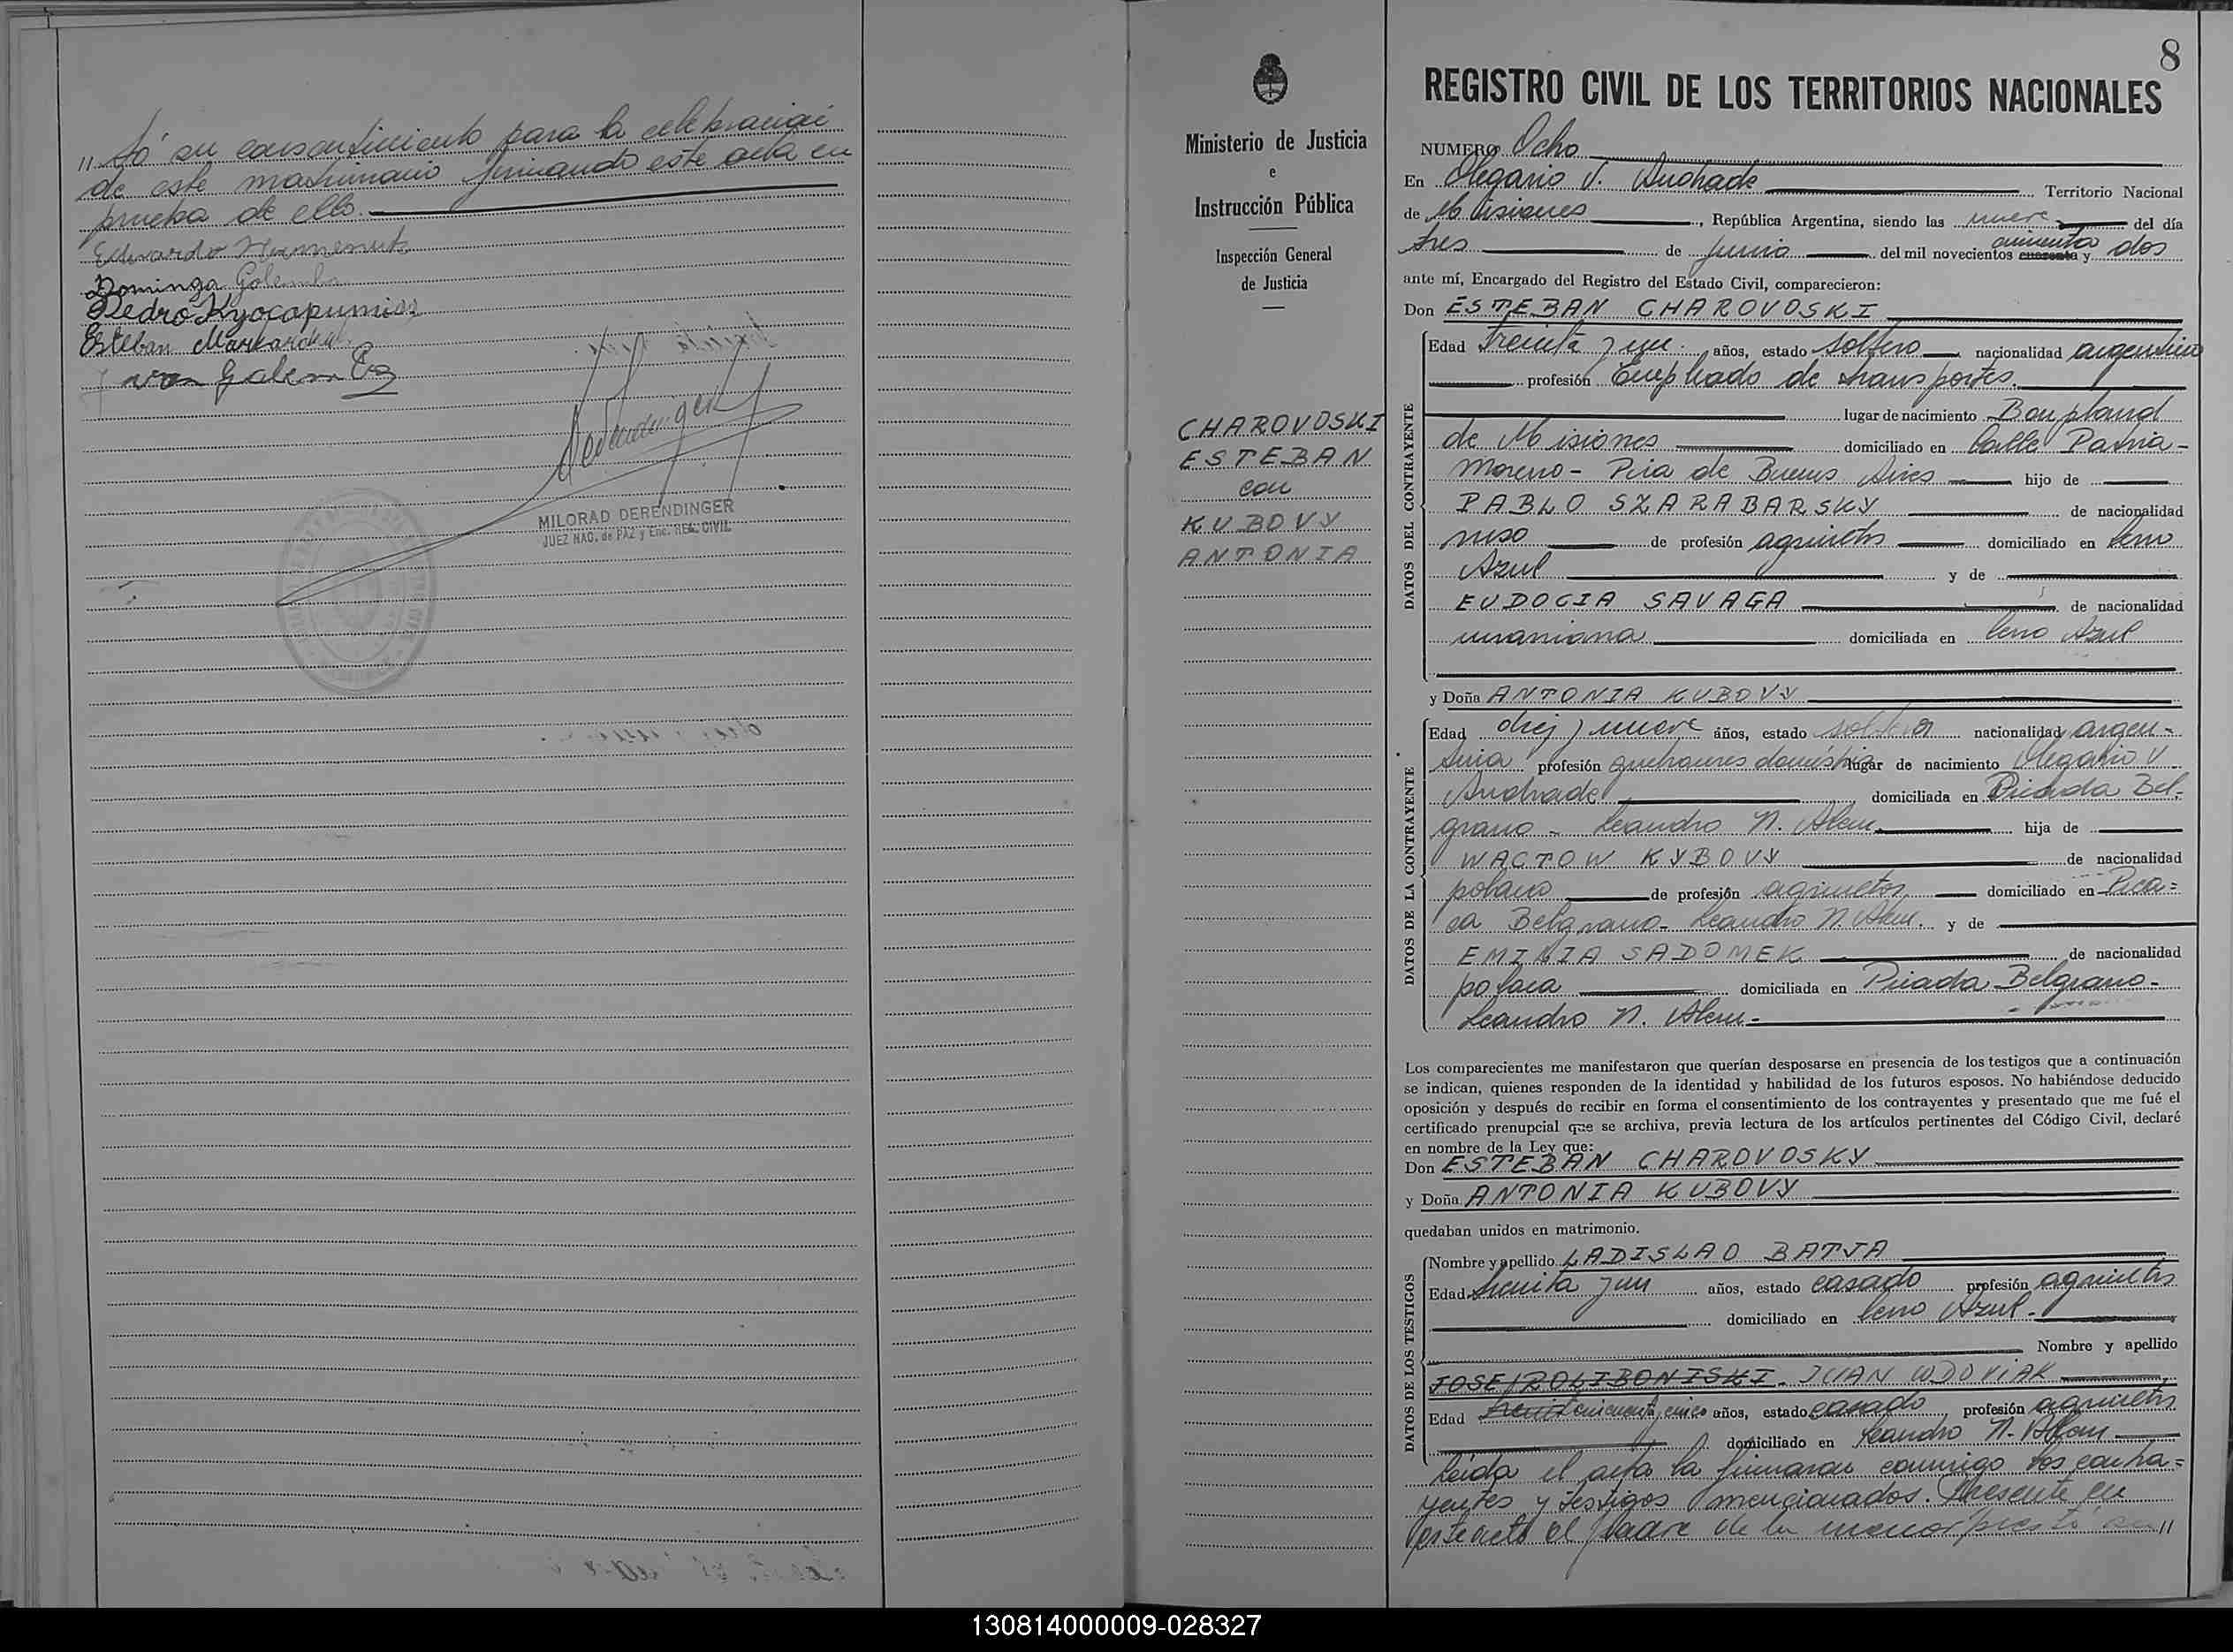 "tó su consentimiento para la celebración
de este matrimonio firmando este acta en
prueba de ello.
Eduardo
Dominga Golemba
Pedro
Esteban
Golemba
MILORAD DERENDINGER
JUEZ NAC. de PAZ y Enc. REG. CIVIL
Ministerio de Justicia
e
Instrucción Pública
Inspección General
de Justicia
CHAROVOSKI
ESTEBAN
con
KUBOVY
ANTONIA
8
REGISTRO CIVIL DE LOS TERRITORIOS NACIONALES
NUMERO Ocho
En Olegario V. Andrade Territorio Nacional
de Misiones, República Argentina, siendo las nueve del día
cincuenta
tres de Junio del mil novecientos cuarenta y dos
ante mí, Encargado del Registro del Estado Civil, comparecieron:
Don ESTEBAN CHAROVOSKI
DATOS DEL CONTRAYENTE
Edad Treinta y un años, estado soltero nacionalidad argentino
profesión Empleado de transportes.
lugar de nacimiento Bonpland
de Misiones domiciliado en Calle Patria-
Moreno - Pcia de Buenos Aires hijo de
PABLO SZARABARSKY de nacionalidad
ruso de profesión agricultor domiciliado en Cerro
Azul y de
EUDOCIA SAVAGA de nacionalidad
ucraniana domiciliada en Cerro Azul
y Doña ANTONIA KUBOVY
DATOS DE LA CONTRAYENTE
Edad diez y nueve años, estado soltera nacionalidad argen-
tina profesión quehaceres domésticos lugar de nacimiento Olegario V.
Andrade domiciliada en Picada Bel-
grano - Leandro N. Alem hija de
WACTOW KYBOVY de nacionalidad
polaco de profesión agricultor domiciliado en Pica=
da Belgrano- Leandro N. Alem. y de
EMILIA SADOMEK de nacionalidad
polaca domiciliada en Picada Belgrano-
Leandro N. Alem-
Los comparecientes me manifestaron que querían desposarse en presencia de los testigos que a continuación
se indican, quienes responden de la identidad y habilidad de los futuros esposos. No habiéndose deducido
oposición y después de recibir en forma el consentimiento de los contrayentes y presentado que me fué el
certificado prenupcial que se archiva, previa lectura de los artículos pertinentes del Código Civil, declaré
en nombre de la Ley que:
Don ESTEBAN CHAROVOSKY
y Doña ANTONIA KUBOVY
quedaban unidos en matrimonio.
DATOS DE LOS TESTIGOS
Nombre y apellido LADISLAO BATJA
Edad treinta y un años, estado casado profesión agricultor
domiciliado en Cerro Azul.
Nombre y apellido
JOSE ROLIBONISKI. JUAN WDOVIAK
Edad cincuenta y cinco años, estado casado profesión agricultor
domiciliado en Leandro N. Alem
Leída el acta la firmaron conmigo los contra=
yentes y testigos mencionados. Presente en
este acto el padre de la menor pres tó su "
130814000009-028327